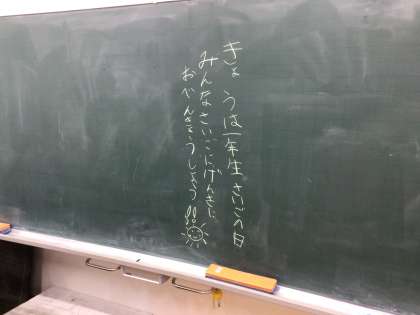 きょうは一年生さいごの日
みんなさいごにげんきに
おべんきょうしよう!!